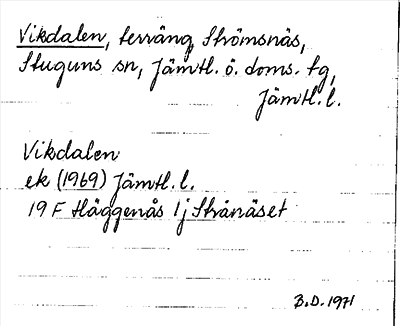 Vikdalen, terräng, Strömsnäs,
Stuguns sn, Jämtl. ö. doms. tg,
Jämtl. l.
Vikdalen
ek (1969) Jämtl. l.
19 F Häggenås 1j Strånäset
B.D. 1971